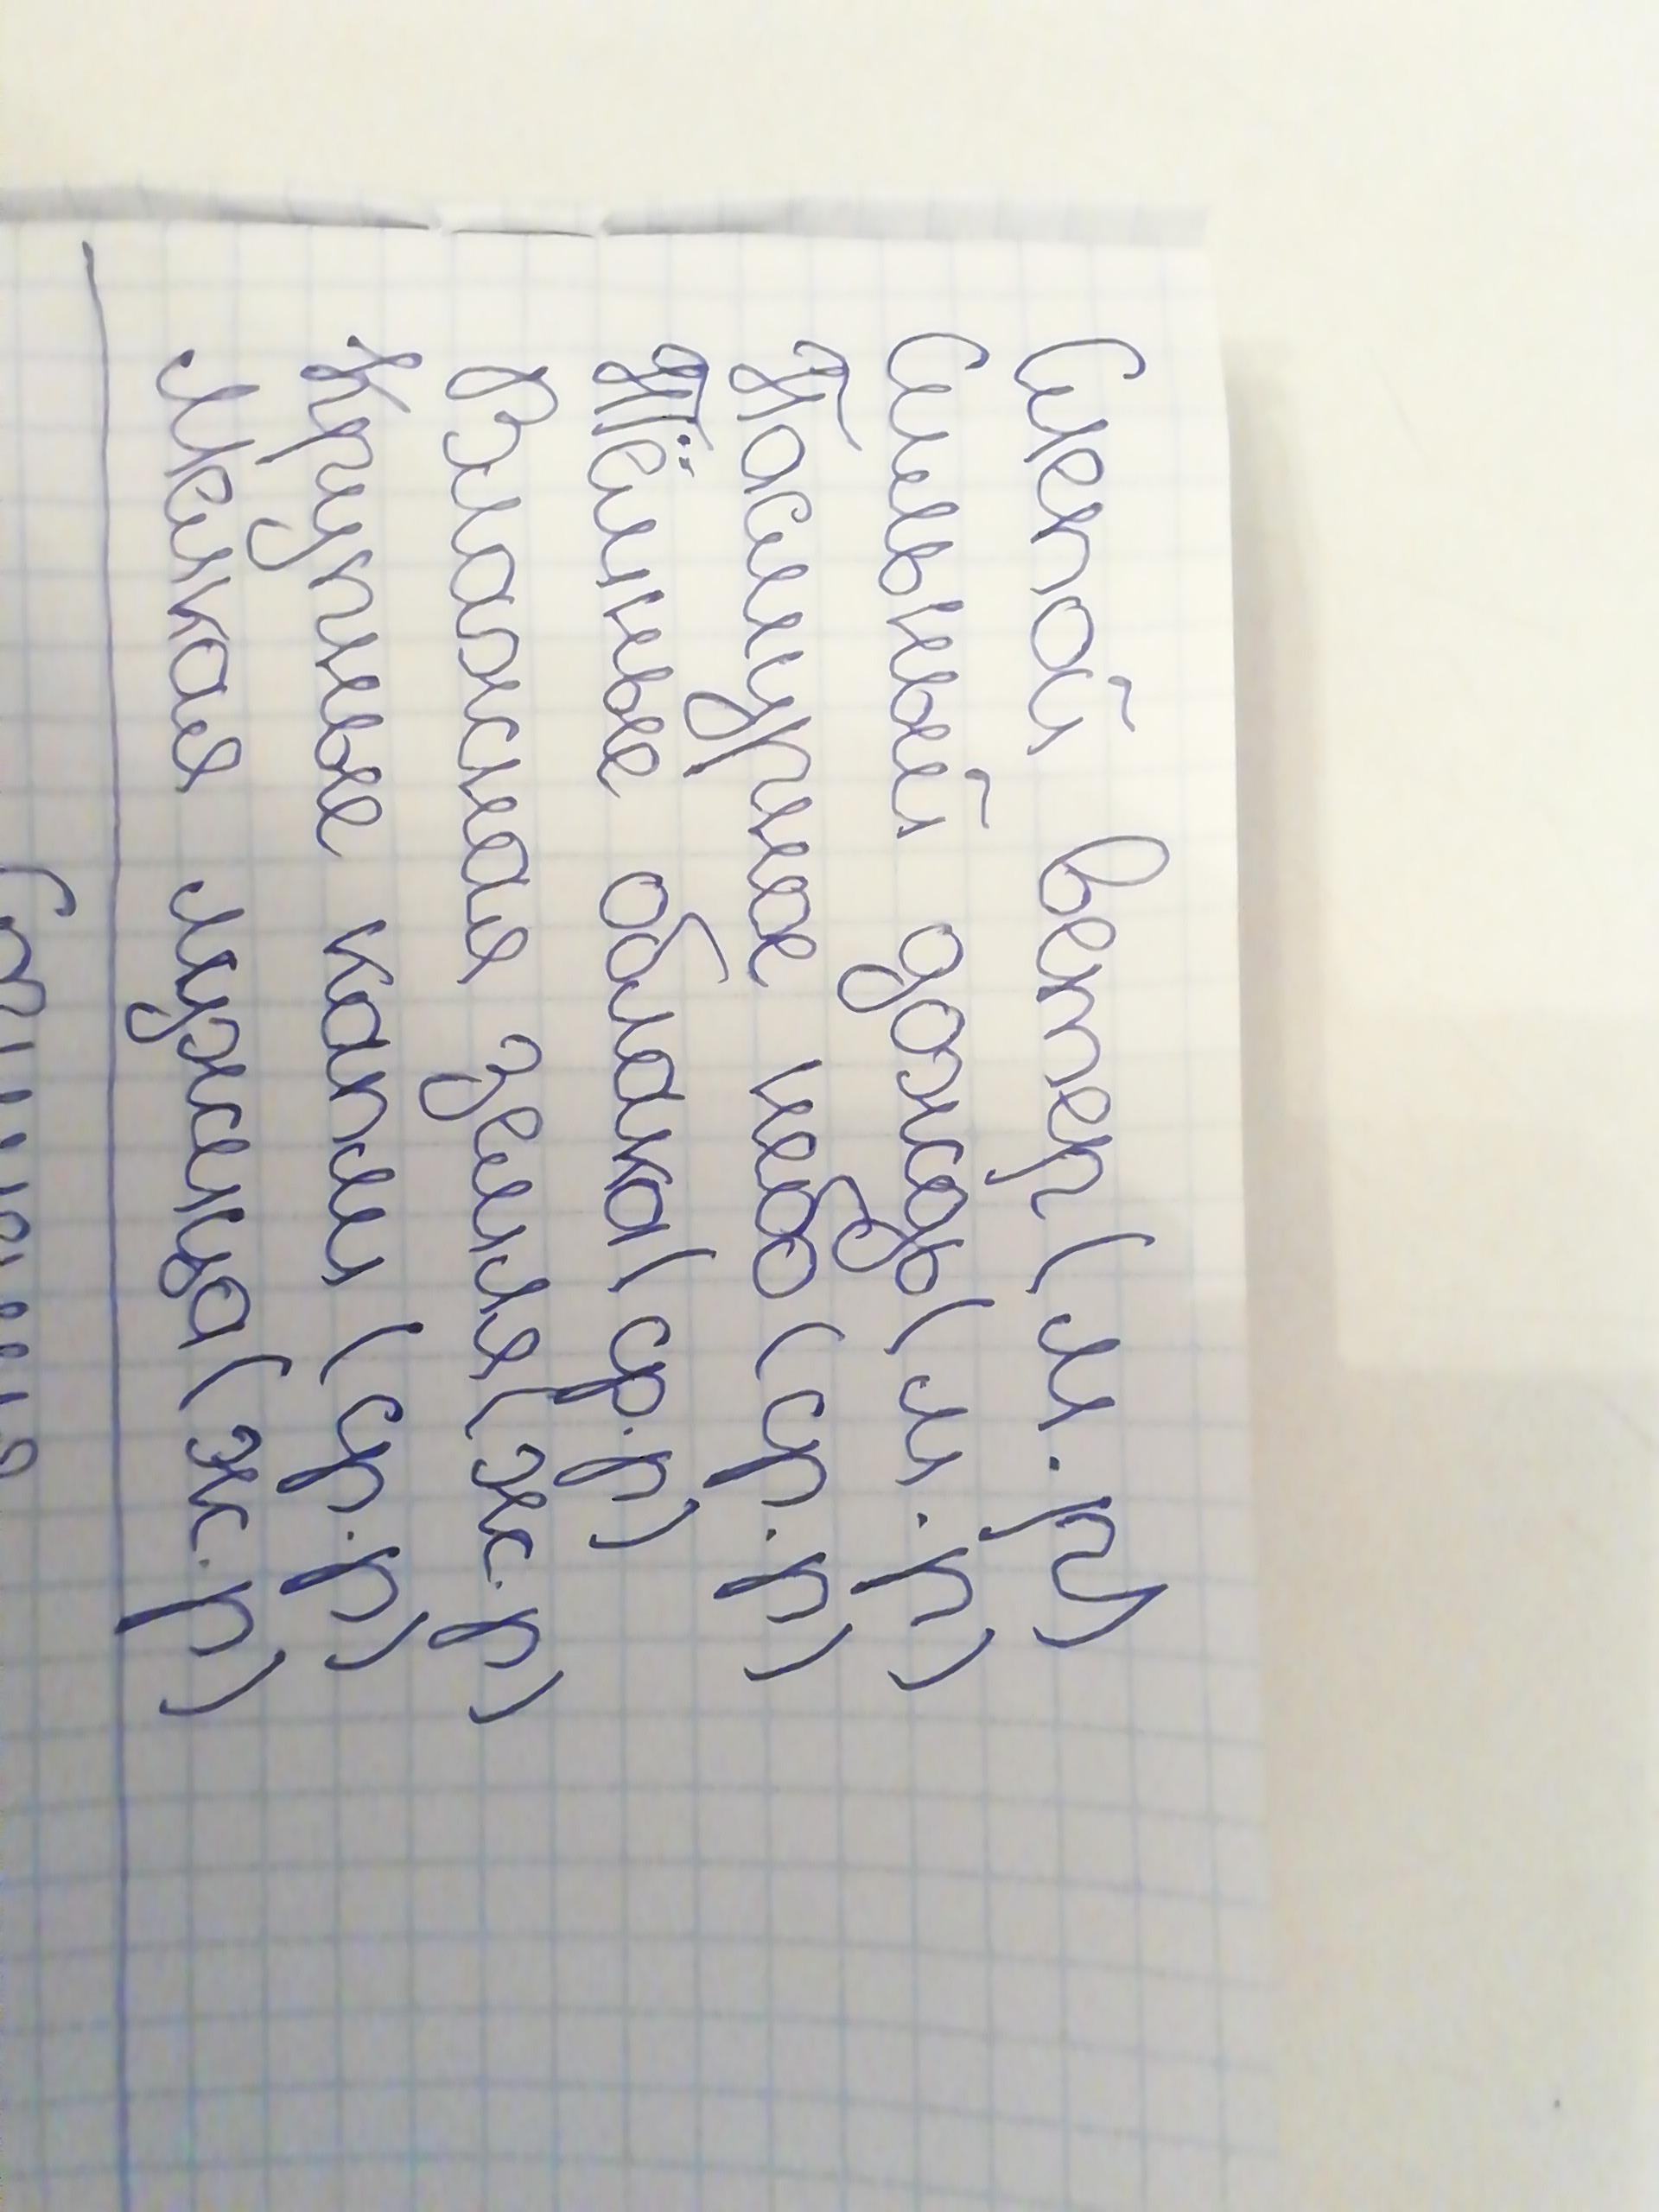 Слепой ветер (м.р)
Сильный дождь (м.р)
Пасмурное небо (ср.р)
Тёмные облака (ср.р)
Влажная земля (ж.р)
Крупные капли (ср.р)
Мелкая лужица (ж.р)